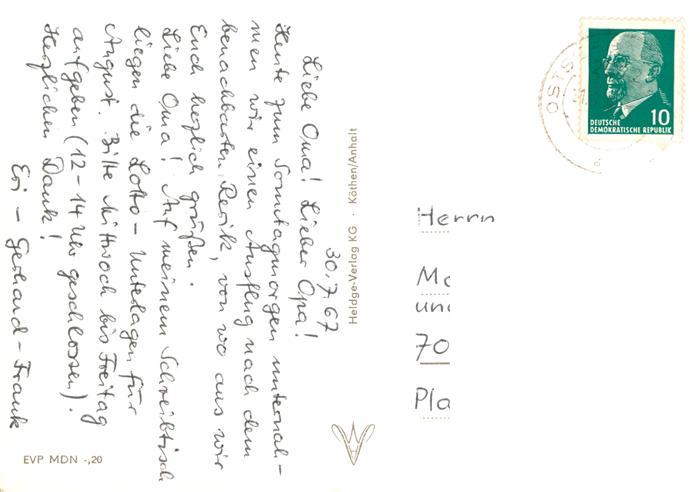 30.7.67
Liebe Oma! Lieber Opa!
Heute zum Sonntagmorgen unterneh-
men wir einen Ausflug nach dem
benachbarten Rerik, von wo aus wir
Euch herzlich grüßen.
Liebe Oma! Auf meinem Schreibtisch
liegen die Lotto-Unterlagen für
August. Bitte Mittwoch bis Freitag
aufgeben (12-14 Uhr geschlossen).
Herzlichen Dank!
Evi - Gerhard - Frank
EVP MDN -,20
Heldge-Verlag KG · Köthen/Anhalt
10
DEUTSCHE
DEMOKRATISCHE REPUBLIK
Herrn
70